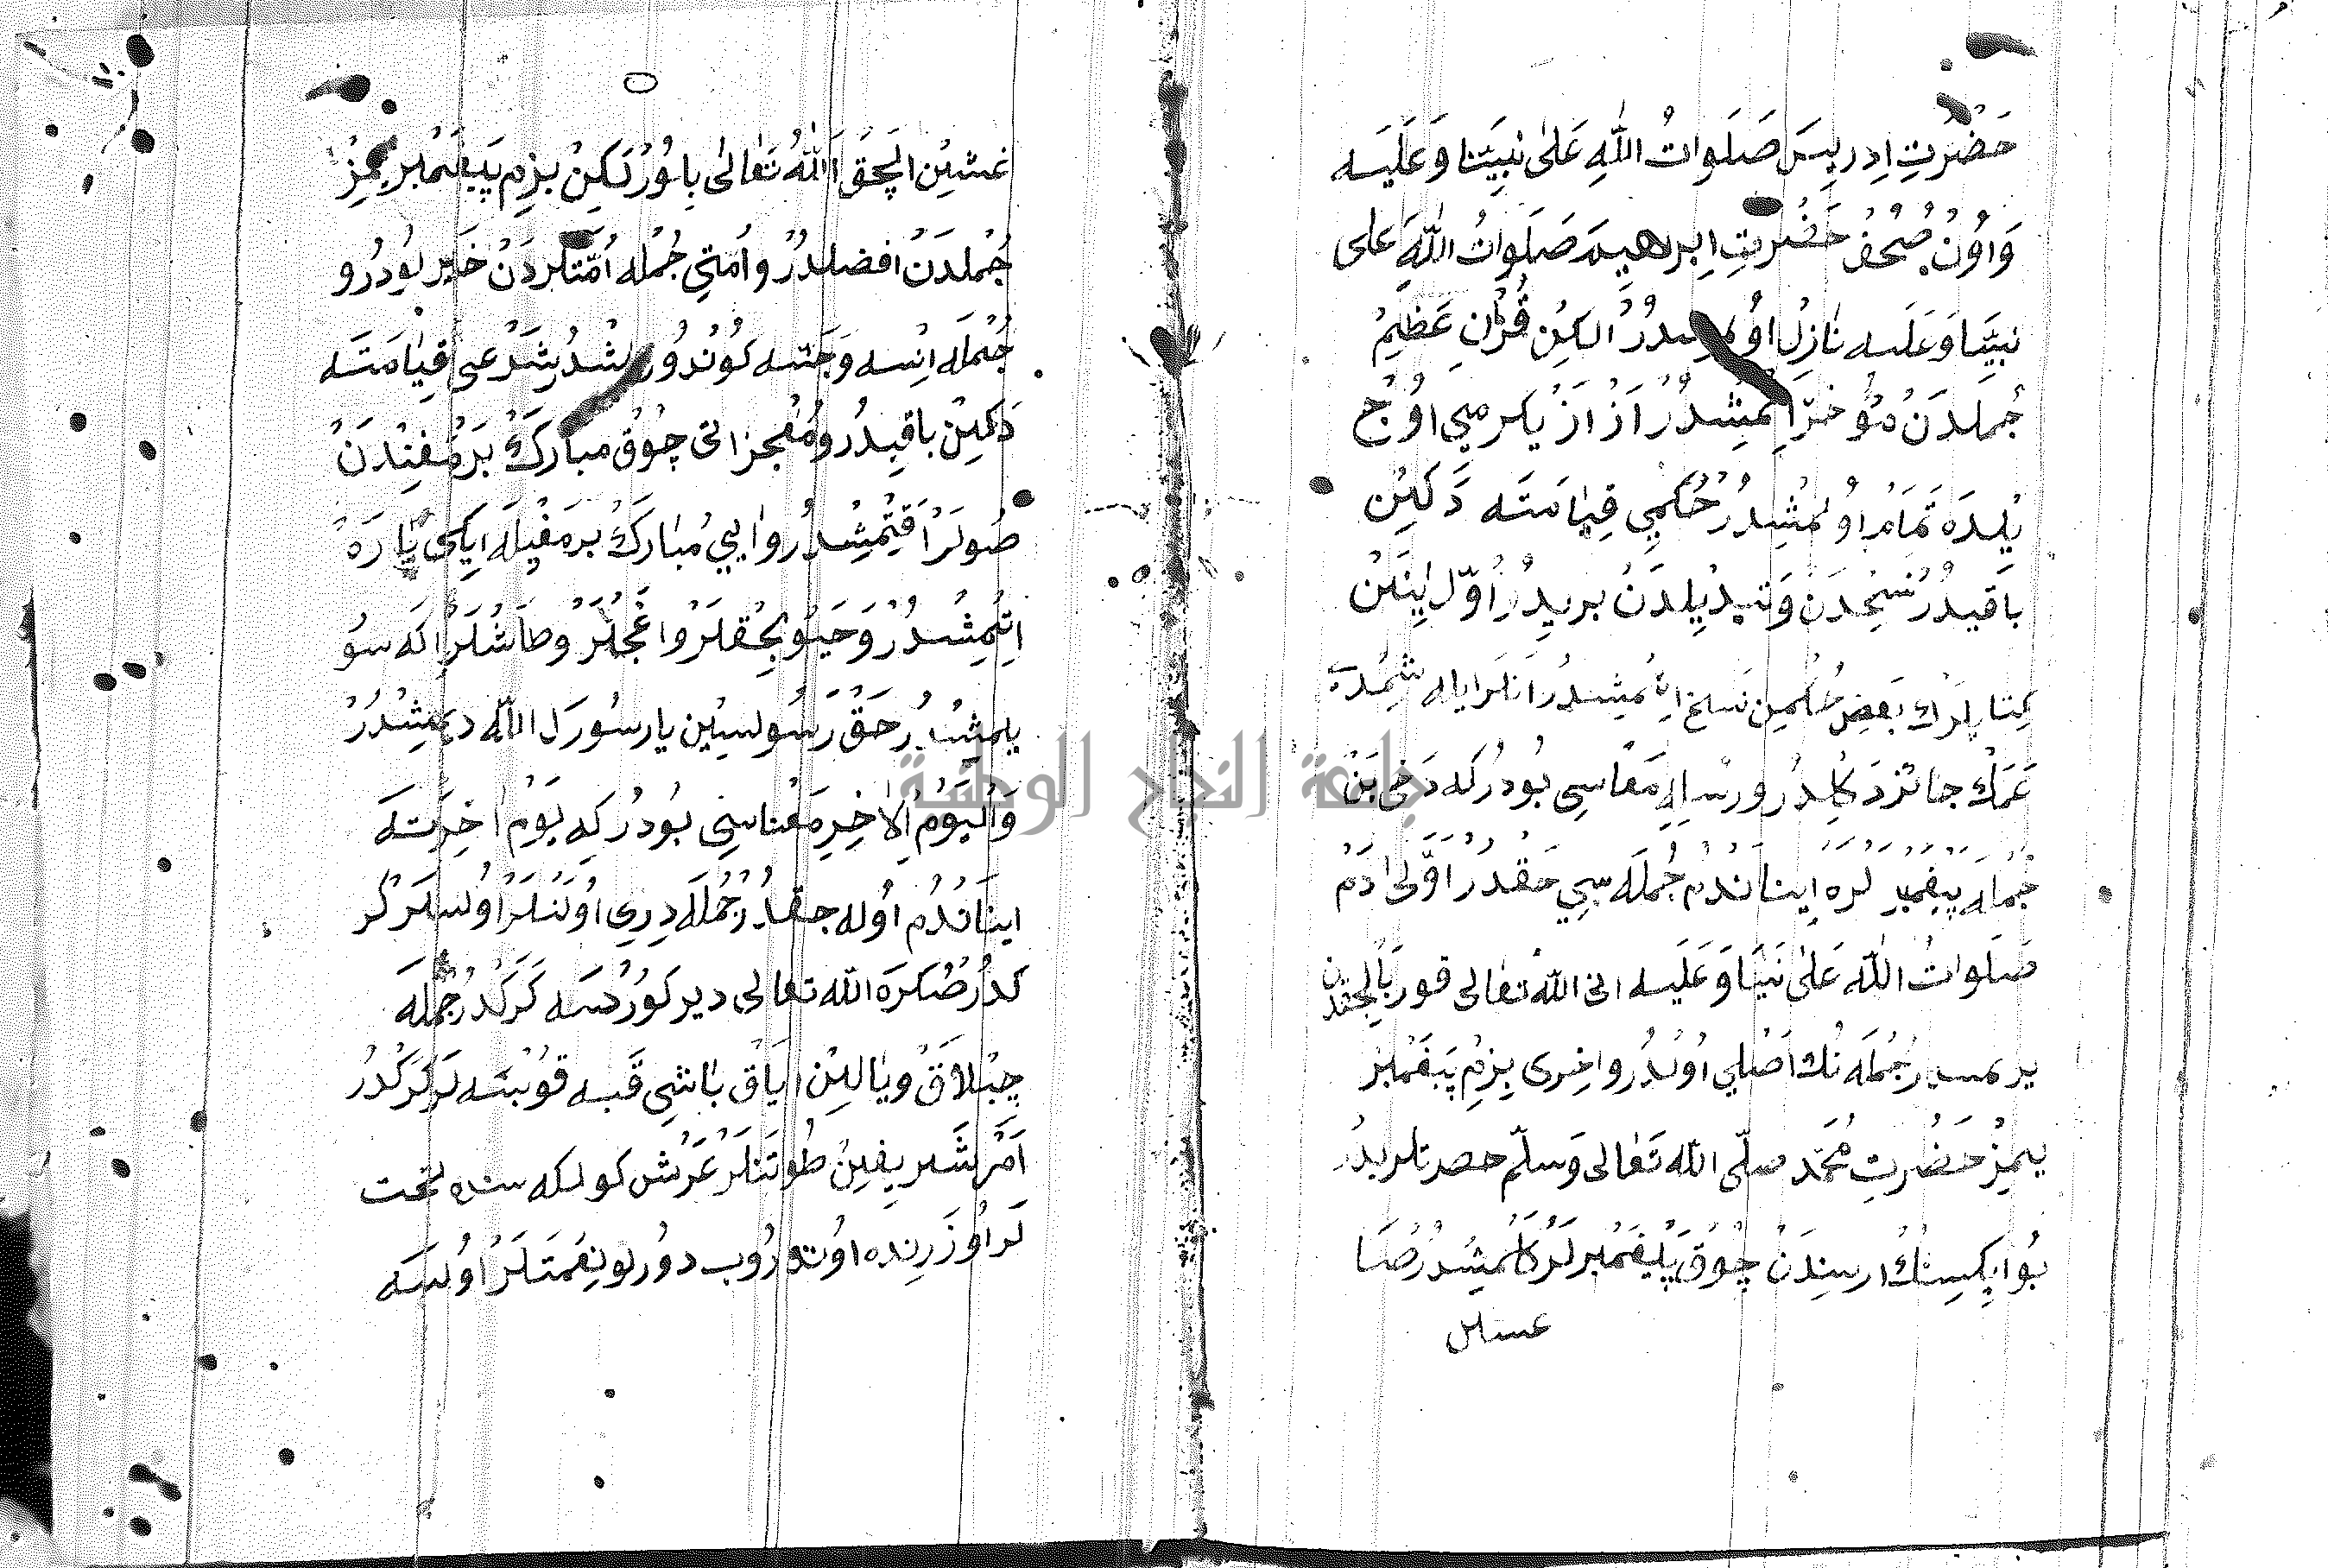 حَضْرَتِ اِدرِيسَ صَلَوَاتُ اللّٰهِ عَلٰى نَبِيِّنَا وَعَلَيه
وَاوُنْ صُحُفْ حَضْرَتِ اِبرٰهيمَ صَلَوَاتُ اللّٰهِ على
نَبِيِّنَا وَعَلَيه نَازِلْ اوُلمِشدُرْ لكِنْ قُرْاٰنِ عَظِيمْ
جُملَدَنْ مُؤخَّر اِنمِشدُرْ اَزْ اَزْ يكرمي اوُچ
يِلدَه تَمَامْ اوُلمُشدُرْ حُكمِي قِيٰامَتَه دَكِينْ
بَاقيدُرْ نَسْخِدَنْ وَتَبديلِدَنْ بريدُرْ اَوّل اينَنْ
كِتَابلَرِكْ بَعْضِ حُكمِن نَسخ اِتمِشدُرْ انلَرايله شِمْدِ
عَمَلْ جائز دَكِلدُر ورُسُلِه مَعْناسِى بُودُركه دَخى بَنْ
جُمله پَيْغَمبَرلَرَه اِينانْدُمْ جُملَه سِي حَقدُرْ اَوَّلى اٰدَمْ
صَلَوَاتُ اللّٰه عَلىٰ نَبيّنَا وَعَلَيه انى اللّٰه تعَالى قورى بَالچِقدَن
يرتمشدر جُملَه نُكْ اَصْلي اوُلدُرْ واٰخِرى بِزِمْ پَيغَمْبَرْ
يمِزْ حَضْرَتِ مُحَمَّد صلّى اللّٰه تَعَالى وَسلّم حضرتلريدُرْ
بُوايكيسنُكْ ارسِندَنْ چُوقْ پَيغَمْبرلَرْ كَلمِشدُرْ صَا
غشينْ الچَقْ اللّٰهُ تَعَالىٰ بِلُورْ لَكِنْ بزِم پَيغَمْبريمِزْ
جُملدَنْ افضلدُرْ واُمَتِي جُمْله اُمّتلردَنْ خَيرلودُرْ و
جُمْله انِسه وَجِنّه كوُندُورلمشدُرْ شَرْعى قِيٰامَتَه
دَكِينْ باقِيدُرْ ومُعْجزاتى چُوقْ مبارَكْ بَرمَغِنْدَنْ
صُولَرْ اَقِتمِشدُرْ واٰيي مُبٰارَكْ برمَغيِلَه اِيكى پٰارَه
اِتْمِشدُرْ وَحَيوٰنجقلَرْ واَغَجْلَرْ وطاَشْلَرْ اكَه سو
يلمشدُرْ حَقْ رَسُولسِين يا رسُولَ اللّٰه ديمشدُرْ
وَالْيَوْمِ الْاٰخِرِ مَعْناسِى بُودُرْكِه يَوْمِ اٰخِرَته
اينَانْدُم اوُله جقدُرْ جُملَه دِرِي اوُلَنلَرْ اوُلسَلَرْ كَرَ
كدُرْ صُكرَه اللّٰه تعالى ديركوُرْسَه كَرَكدُرْ جُمله
چِبْلاقْ ويالِينْ اياَقْ باشِى قَبه قوُبسَه لَرْ كَرَكدُرْ
اَمْرِ شَريفِينْ طُوتَنلَرْ عَرْش كولكه سنده تخت
لَر اُوزَرِنده اوُتورُوب دوُرلو نِعْمَتلَرْ اوُلسَه